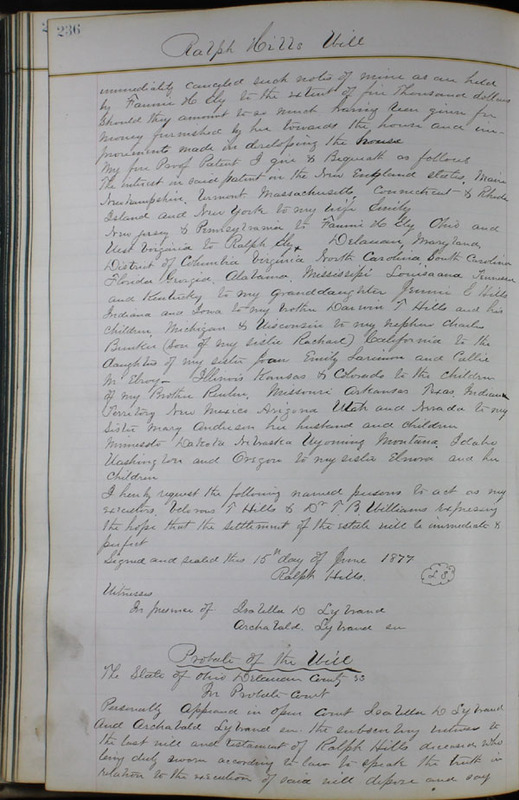 236
Ralph Hills Will
immediately canceled such notes of mine as are held
by Fannie H Ely to the extent of five Thousand dollars
should they amount to so much having been given for
money furnished by her towards the house and im-
provements made in developing the house
My fire Proof Patent I give & Bequeath as follows
The interest in said patent in the New England states, Maine
Newhampshire, Vermont Massachusetts, Connecticut & Rhode
Island and New York to my wife Emily
New Jersey & Pennsylvania to Fannie H Ely Ohio and
West Virginia to Ralph Ely Delawan, Maryland,
District of Columbia Virginia North Carolina, South Carolina
Florida Georgia, Alabama, Mississippi Louisaana Tennessee
and Kentucky to my Granddaughter Jennie E Hills
Indiana and Iowa to my brother Darwin T Hills and his
children, Michigan & Wisconsin to my nephew Charles
Bunker (son of my sister Rachael) California to the
daughters of my sister Joan Emily Larimon and Callie
McElroy - Illinois Kansas & Colorado to the children
of my Brother Reuben, Missouri Arkansas Texas, Indian
Territory New Mexico Arizona Utah and Nevada to my
sister Mary Anderson her husband and children
Minnesota Dakota Nebraska Wyoming Montana, Idaho
Washington and Oregon to my sister Elnora and her
children
I hereby request the following named persons to act as my
executors, T Hills & Dr T. B Williams expressing
the hope that the settlement of the estate will be immediate &
perfect
Signed and sealed this 15th day of June 1877
Ralph Hills. L S
Witnesses
In presence of Isabella D Lybrand
Archabald. Lybrand sen
Probate of the Will
The State of Ohio Delawan County ss
In Probate Court
Personally appeared in open Court Isabella D Lybrand
and Archabald Lybrand sen. the subscribing witnesses to
the last will and testament of Ralph Hills deceased who
being duly sworn according to law to speak the truth in
relation to the execution of said will depose and say